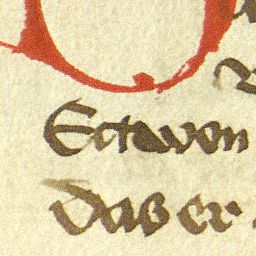 Ectavon
Das er